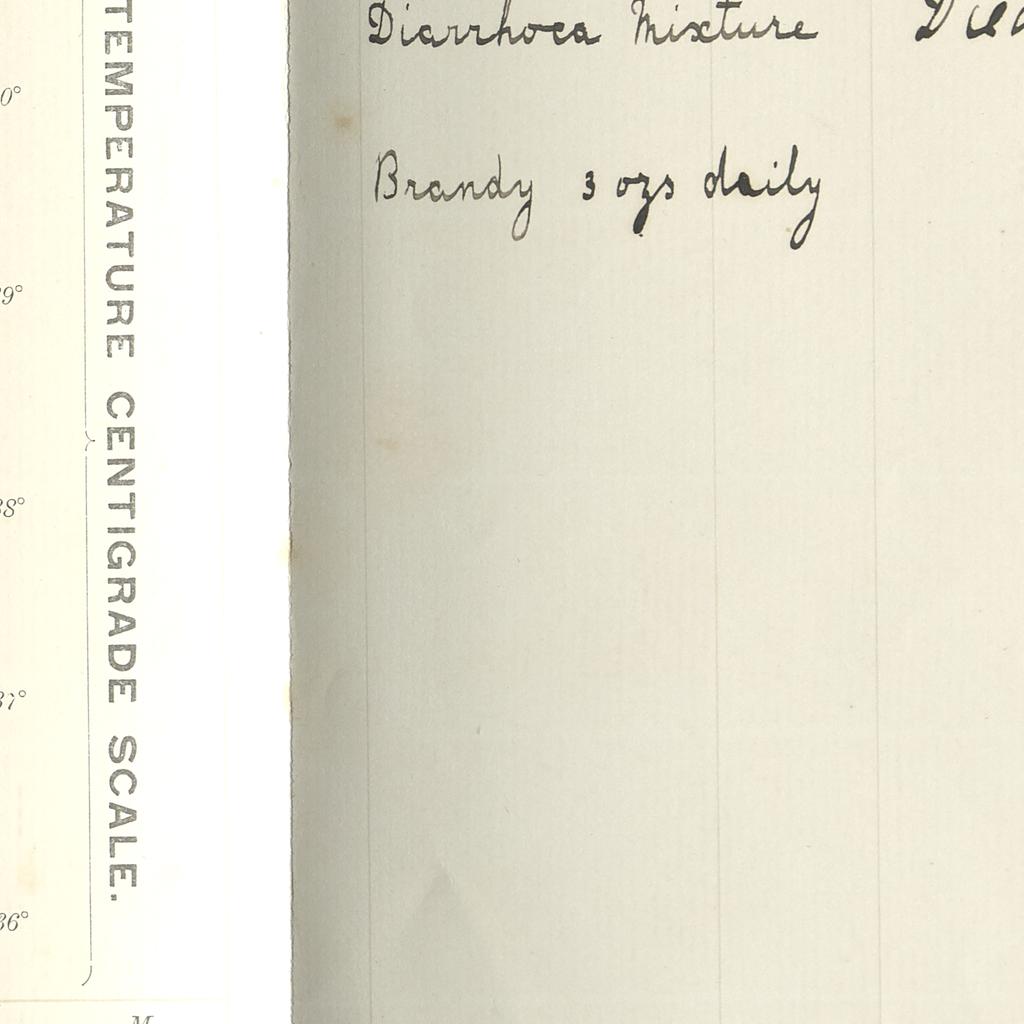 TEMPERATURE CENTIGRADE SCALE.
0°
9°
38°
37°
36°
M
Diarrhoea Mixture
Brandy 3 ozs daily